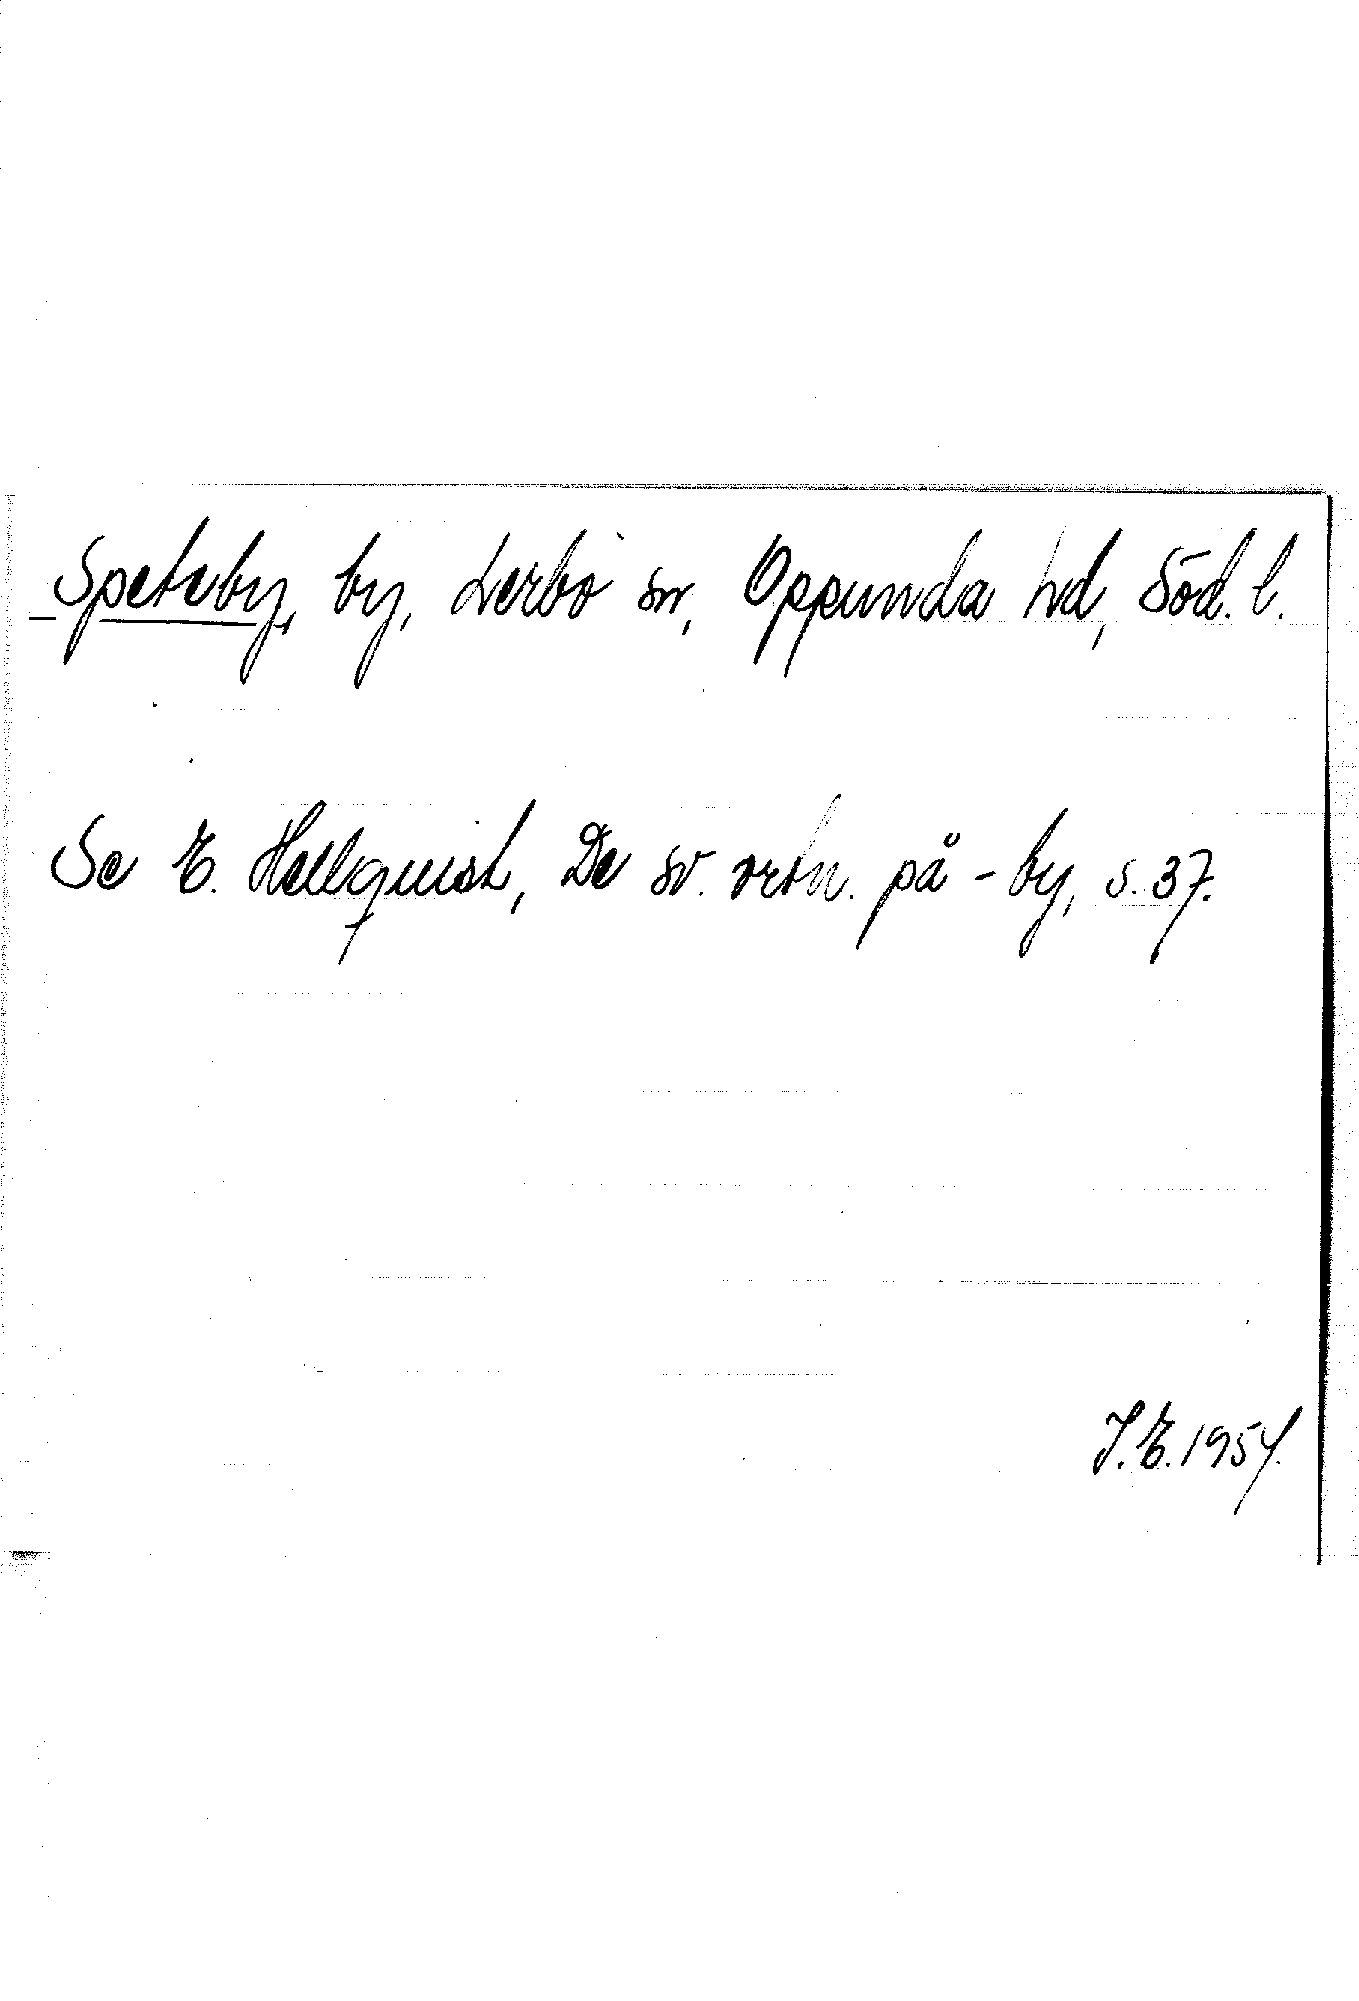 Speteby, by, Lerbo sn, Oppunda hd, Söd. l.
Se E. Hellquist, De sv. ortn. på -by, s. 37.
J.E. 1954.